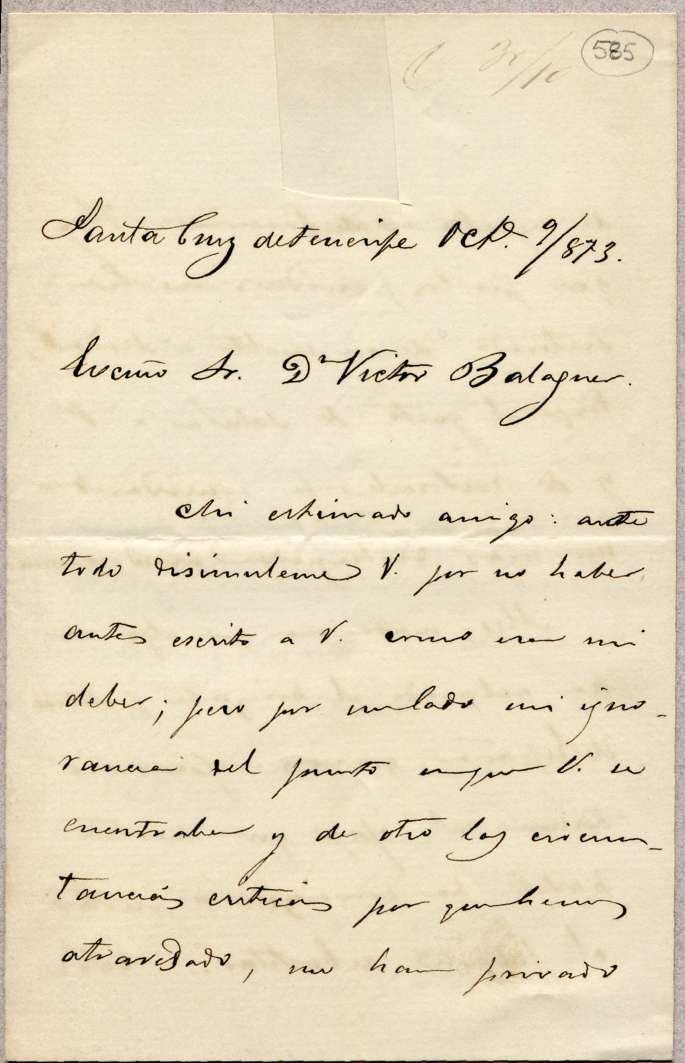 585
30/10
Santa Cruz de Tenerife Octe. 9/873.
Excmo Sr. Dn Victor Balaguer.
Mi estimado amigo: ante
todo disimuleme V. por no haber
antes escrito a V. como era mi
deber; pero por un lado mi igno-
rancia del punto en que V. se
encontraba y de otro las circuns-
tancias criticas por que hemos
atravesado, me han privado